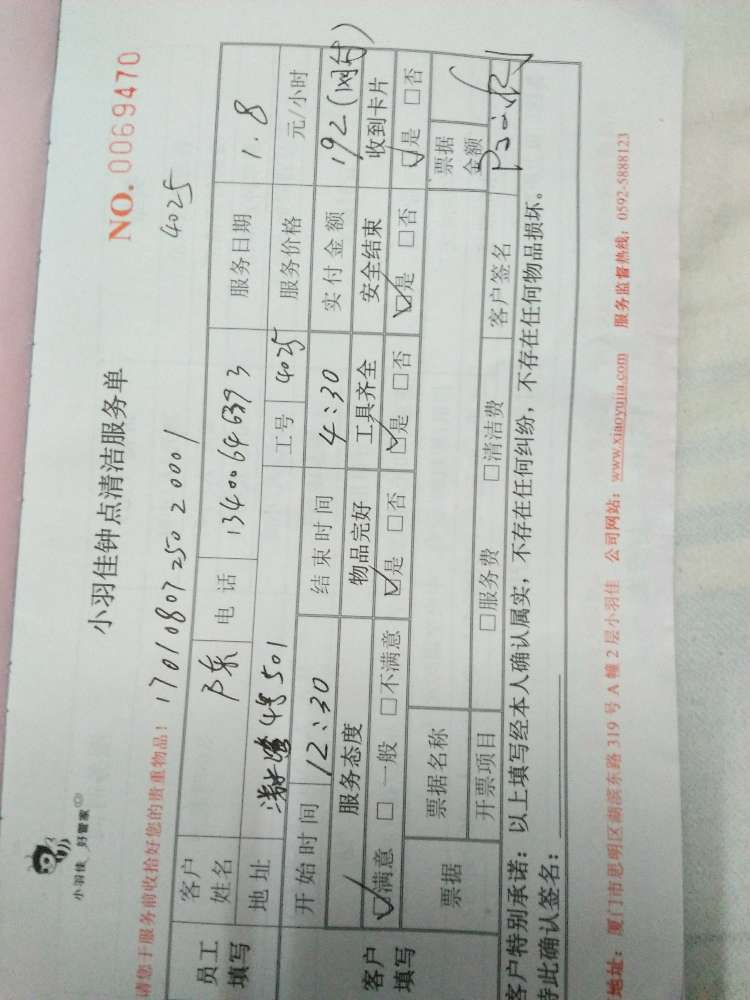 小羽佳 好管家
小羽佳钟点清洁服务单
NO. 0069470
请您于服务前收拾好您的贵重物品！
17010807250 20001
4025
员工填写
客户姓名
电话 13400646393
服务日期 1.8
地址 4号501
工号 4025
服务价格 元/小时
客户填写
开始时间 12:30
结束时间 4:30
实付金额 192
服务态度 物品完好 工具齐全 安全结束 收到卡片
☑满意 □一般 □不满意 ☑是 □否 ☑是 □否 ☑是 □否 ☑是 □否
票据
票据名称
票据金额
开票项目 □服务费 □清洁费
客户签名
客户特别承诺：以上填写经本人确认属实，不存在任何纠纷，不存在任何物品损坏。
特此确认签名：
地址：厦门市思明区湖滨东路 319 号 A 幢 2 层小羽佳 公司网站：www.xiaoyujia.com 服务监督热线：0592-5888123